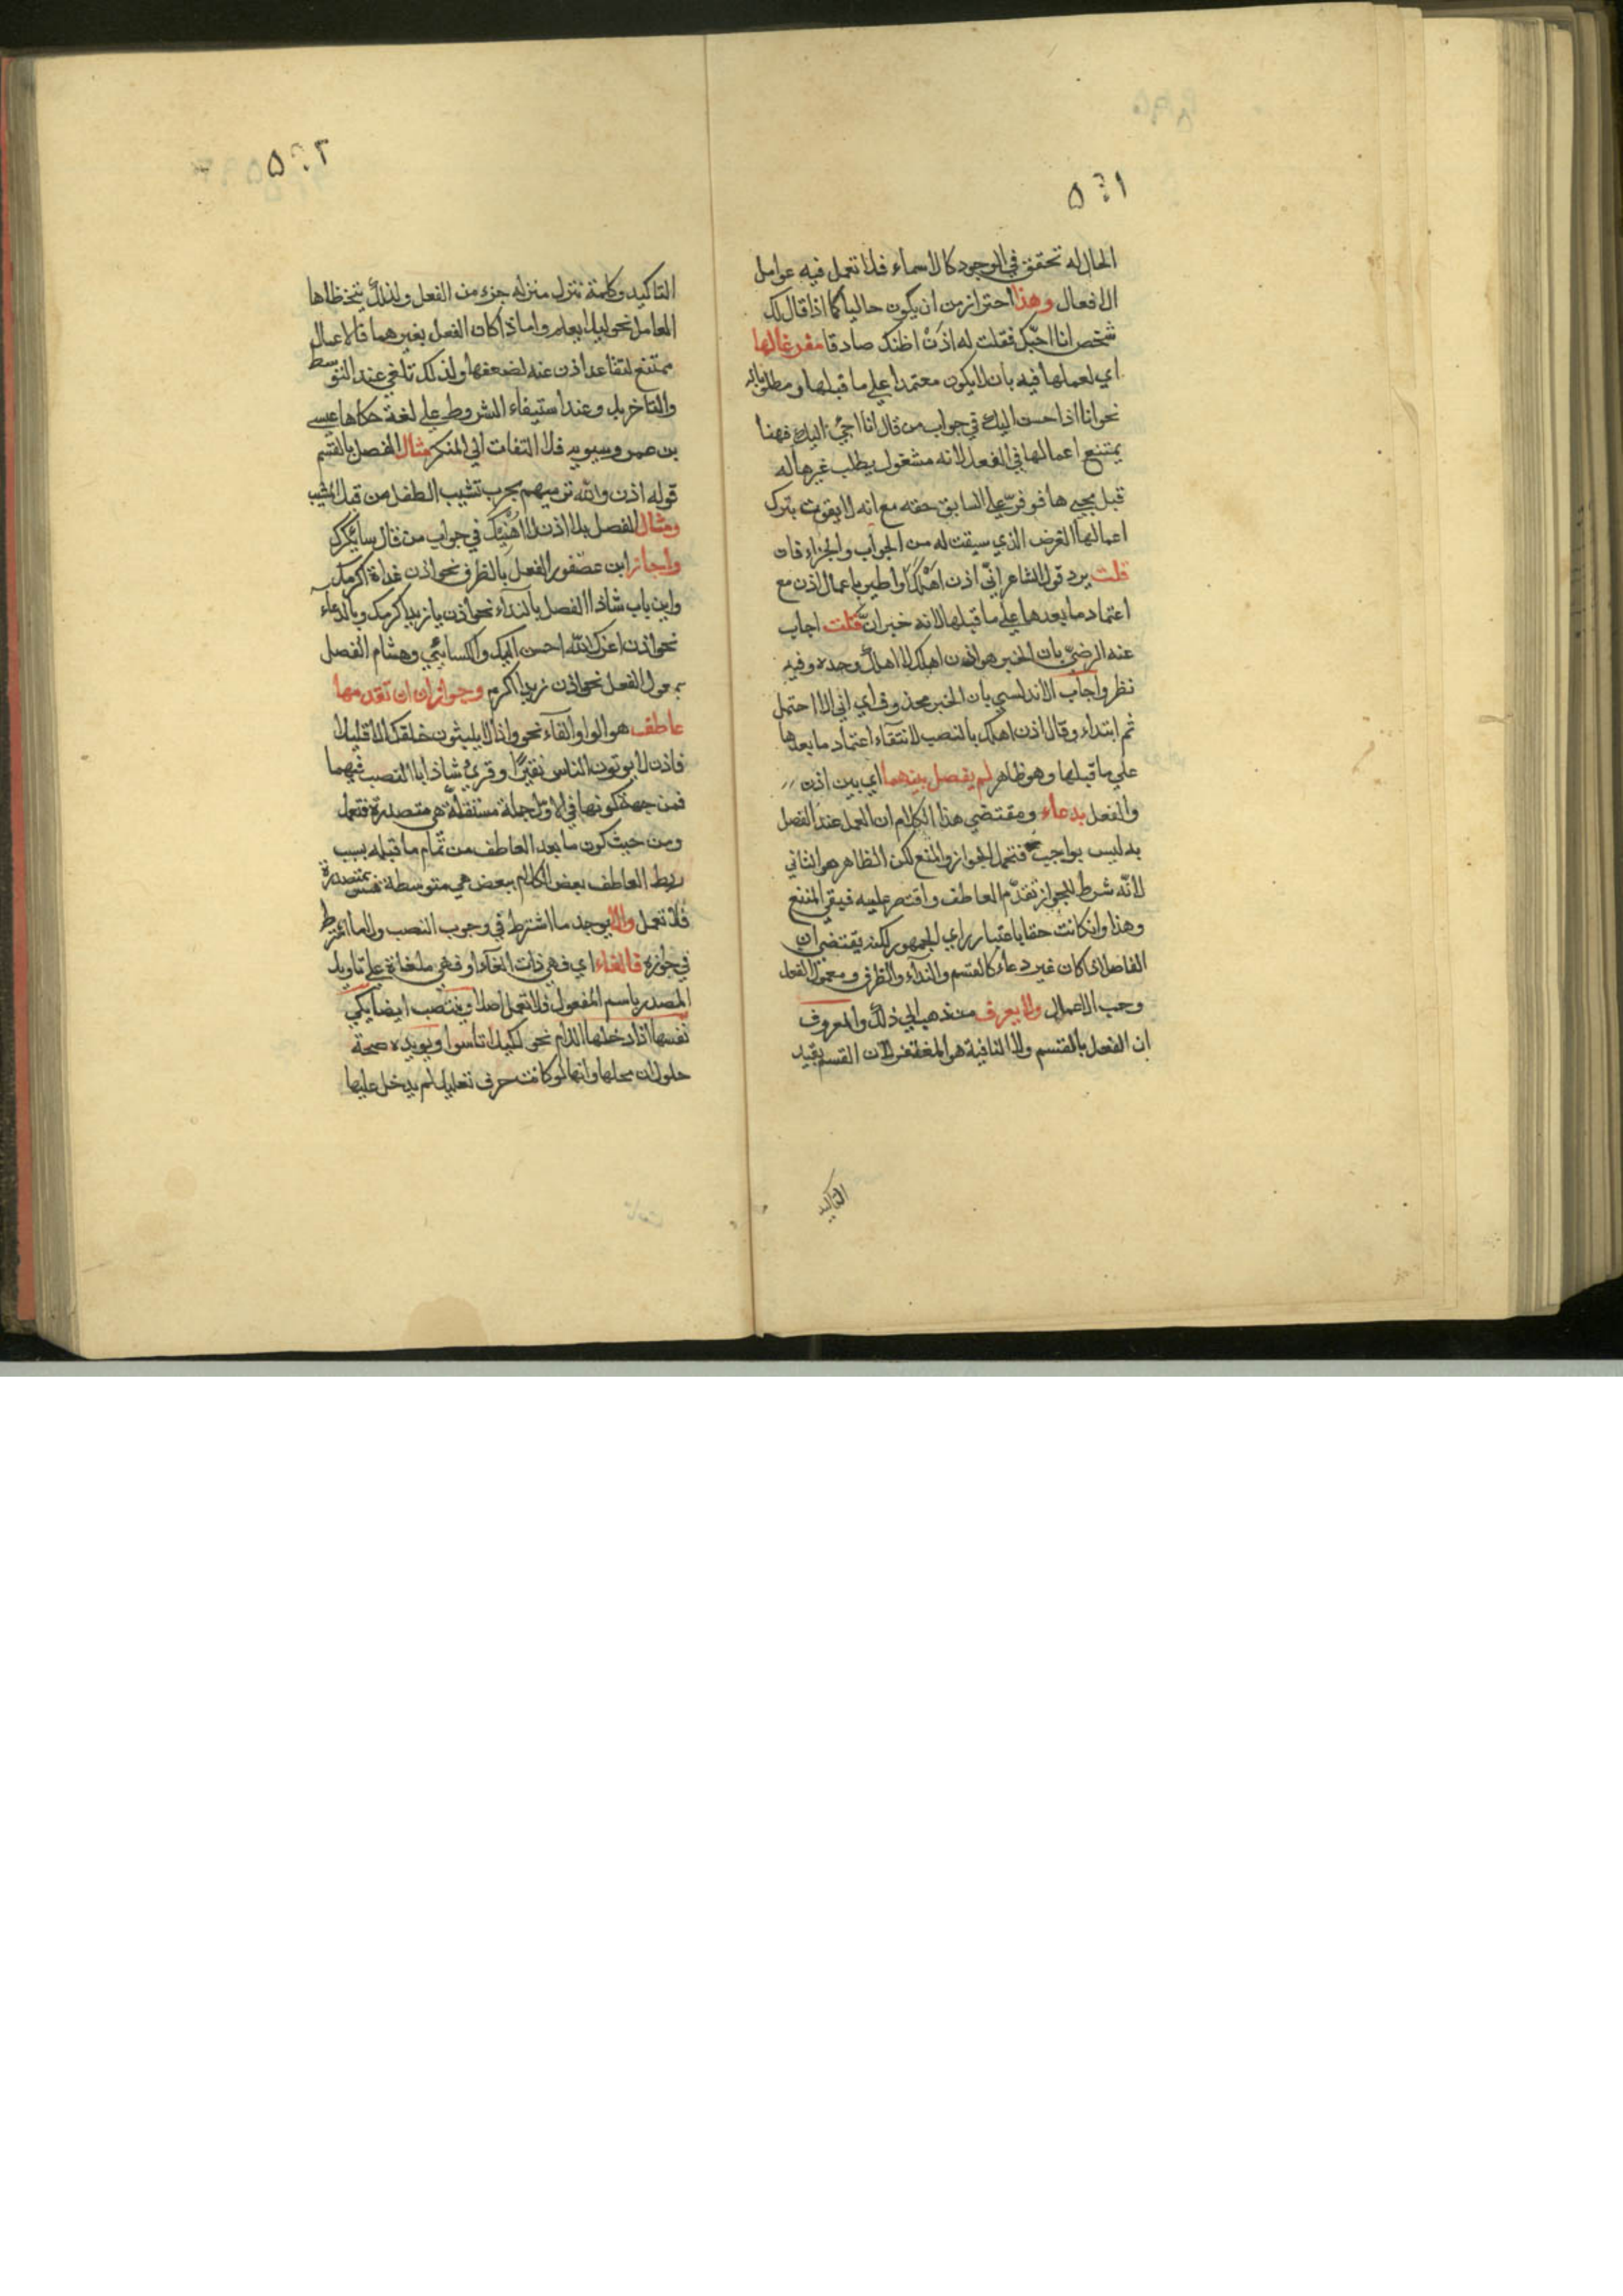 ٥٠١
الحال له تحقق في الوجود كالاسماء فلا تعمل فيه عوامل
الافعال وهذا احتراز من ان يكون حاليا كما اذا قال لك
شخص انا احبّك فقلت له اذن اظنك صادقا مفرغا لها
اي لعملها فيه بان لا يكون معتمدا علي ما قبلها ومطلوبا له
نحو انا اذا احسن اليك في جواب من قال انا اجيُ اليك فهنا
يمتنع اعمالها في الفعل لانه مشغول يطلب غيرها له
قبل مجيها فوفر علي السابق حقه مع انه لا يفوت بترك
اعمالها الغرض الذي سيقت له من الجواب والجزاء فان
قلت يرد قول الشاعر انّي اذن اهْلكَ او اطير باعمال اذن مع
اعتماد ما بعدها علي ما قبلها لانه خبر انّ قلت اجاب
عنه الرضيّ بان الخبر هو اذن اهلك لا اهلك وحده وفيه
نظر واجاب الاندلسي بان الخبر محذوف اي اني لا احتمل
ثم ابتداء وقال اذن اهلك بالنصب لانتفاء اعتماد ما بعدها
علي ما قبلها وهو ظاهر لم يفصل بينهما اي بين اذن
والفعل بدعاء ومقتضي هذا الكلام ان العمل عند الفصل
به ليس بواجب فتحمل الجواز والمنع لكن الظاهر هو الثاني
لانّه شرط للجواز تقدّم العاطف واقتصر عليه فبقي الممتنع
وهذا وان كانت حقا باعتبار راي الجمهور لكنه يقتضي ان
الفاصل اذا كان غير دعاء كالقسم والنداء والظرف ومعمول الفعل
وجب الاعمال ولا يعرف من ذهب الي ذلك والمعروف
ان الفصل بالقسم ولا النافية هو المغتفر لان القسم يفيد
التاكيد
٥٠٢
التاكيد وكلمة تنزل منزلة جزء من الفعل ولذلك يتخطاها
العامل نحو ليلا يعلم واما اذا كان الفعل بغيرهما فالاعمال
ممتنع لتقاعد اذن عنه لضعفها ولذلك تلغي عند التوسط
والتاخر بل وعند استيفاء الشروط علي لغة حكاها عيسي
بن عمر وسيبويه فلا التفات الي المنكر مثال الفصل بالقسم
قوله اذن والله نرميهم بحرب تشيب الطفل من قبل المشيب
ومثال الفصل بلا اذن لا اهينك في جواب من قال ساكرمك
واجاز ابن عصفور الفصل بالظرف نحو اذن غداة اكرمك
وابن باب شاذ الفصل بالنداء نحو اذن يا زيد اكرمك وبالدعاء
نحو اذن اعزك الله احسن اليك والكسائي وهشام الفصل
بمعمول الفعل نحو اذن زيدا اكرم وجوازا ان تقدمها
عاطف هو الواو والفاء نحو واذا لا يلبثون خلفك الا قليلا
فاذن لا يوتون الناس نقيرًا وقري شاذا بالنصب فيهما
فمن جهة كونها في الاول جملة مستقلة هي متصدرة فتعمل
ومن حيث كون ما بعد العاطف من تمام ما قبله بسبب
ربط العاطف بعض الكلام ببعض هي متوسطة غير متصدرة
فلا تعمل والا يوجد ما اشترط في وجوب النصب ولا ما اشترط
في جوازه فالغاء اي فهي ذات الغاء او فهي ملغاة علي تاويل
المصدر باسم المفعول فلا تعمل اصلا وينتصب ايضا بكي
نفسها اذا دخلها اللام نحو لكيلا تاسوا ويويده صحة
حلول ان محلها وانها لو كانت حرف تعليل لم يدخل عليها